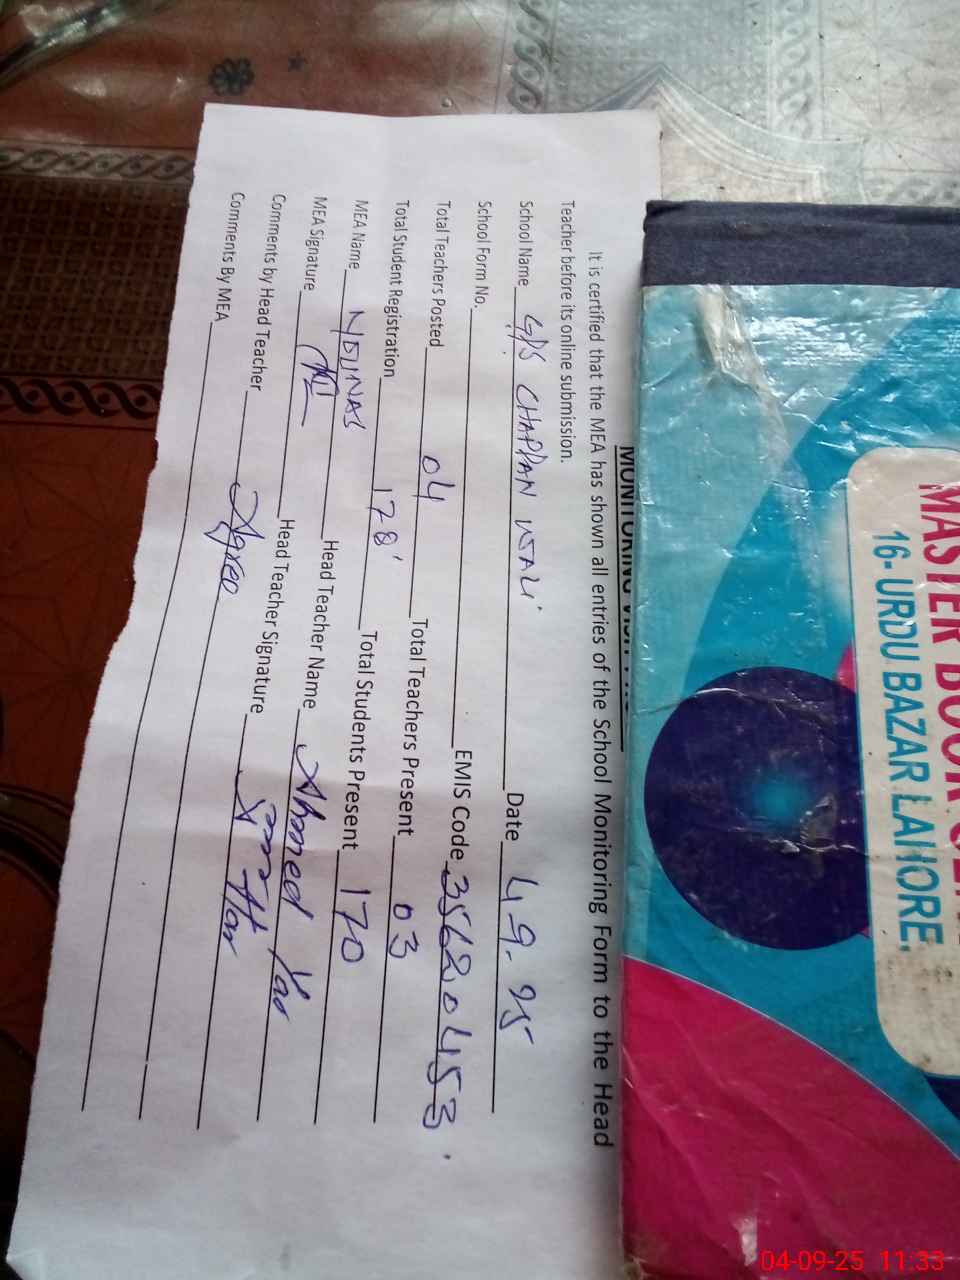 MONITORING VISIT
It is certified that the MEA has shown all entries of the School Monitoring Form to the Head
Teacher before its online submission.
School Name G/PS CHAPPAN WALI Date 4-9-25
School Form No. EMIS Code 35620453
Total Teachers Posted 04 Total Teachers Present 03
Total Student Registration 178 Total Students Present 170
MEA Name Head Teacher Name Ahmed Yar
MEA Signature Head Teacher Signature
Comments by Head Teacher Agree
Comments By MEA
MASTER BOOK
16- URDU BAZAR LAHORE.
04-09-25 11:33